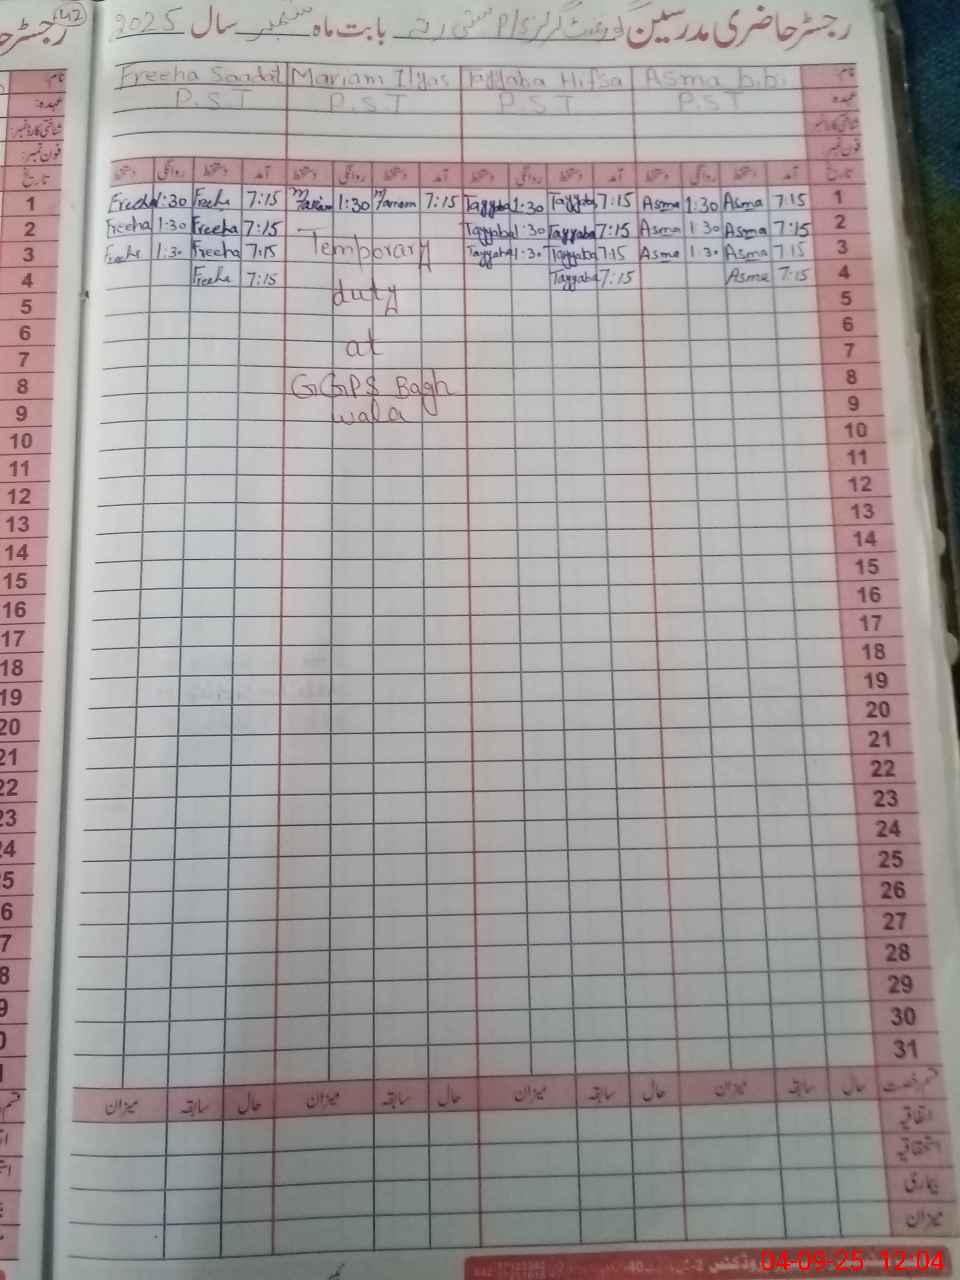 42
رجسٹر حاضری مدرسین گورنمنٹ گرلز P/S بستی بابت ماہ ستمبر سال 2025
نام: Asma bibi Tayyaba Hifsa Mariam Ilyas Freeha Saadat
عہدہ: P.S.T P.S.T P.S.T P.S.T
شناختی کارڈ نمبر:
فون نمبر:
تاریخ آمد دستخط روانگی دستخط آمد دستخط روانگی دستخط آمد دستخط روانگی دستخط آمد دستخط روانگی دستخط
1 7:15 Asma 1:30 Asma 7:15 Tayyaba 1:30 Tayyaba 7:15 Mariam 1:30 Mariam 7:15 Freeha 1:30 Freeha 1
2 7:15 Asma 1:30 Asma 7:15 Tayyaba 1:30 Tayyaba 7:15 Freeha 1:30 Freeha 2
3 7:15 Asma 1:30 Asma 7:15 Tayyaba 1:30 Tayyaba Temporary 7:15 Freeha 1:30 Freeha 3
4 7:15 Asma 7:15 Tayyaba duty 7:15 Freeha 4
5 5
6 at 6
7 7
8 GGPS Bagh 8
9 wala 9
10 10
11 11
12 12
13 13
14 14
15 15
16 16
17 17
18 18
19 19
20 20
21 21
22 22
23 23
24 24
25 25
26 26
27 27
28 28
29 29
30 30
31
قسم رخصت حال سابقہ میزان حال سابقہ میزان حال سابقہ میزان حال سابقہ میزان
اتفاقیہ
استحقاقیہ
بیماری
میزان
04-09-25 12:04